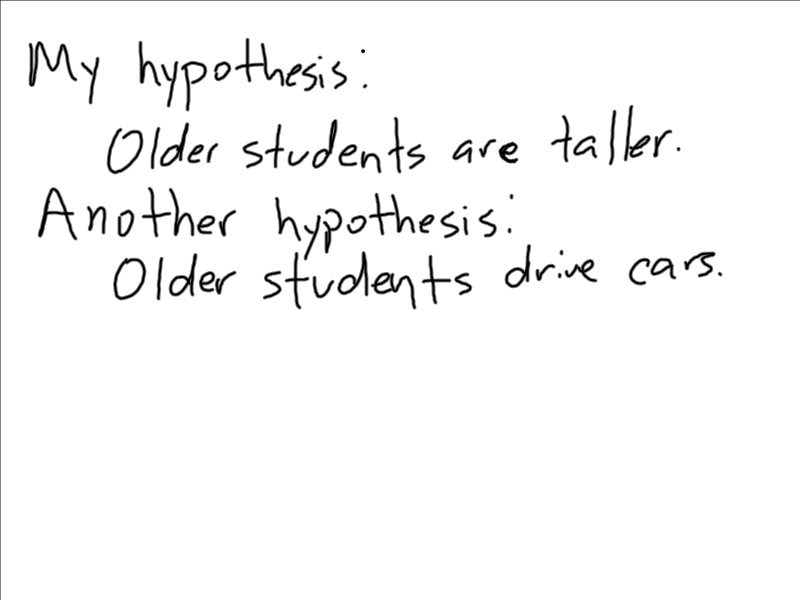 My hypothesis:
Older students are taller.
Another hypothesis:
Older students drive cars.